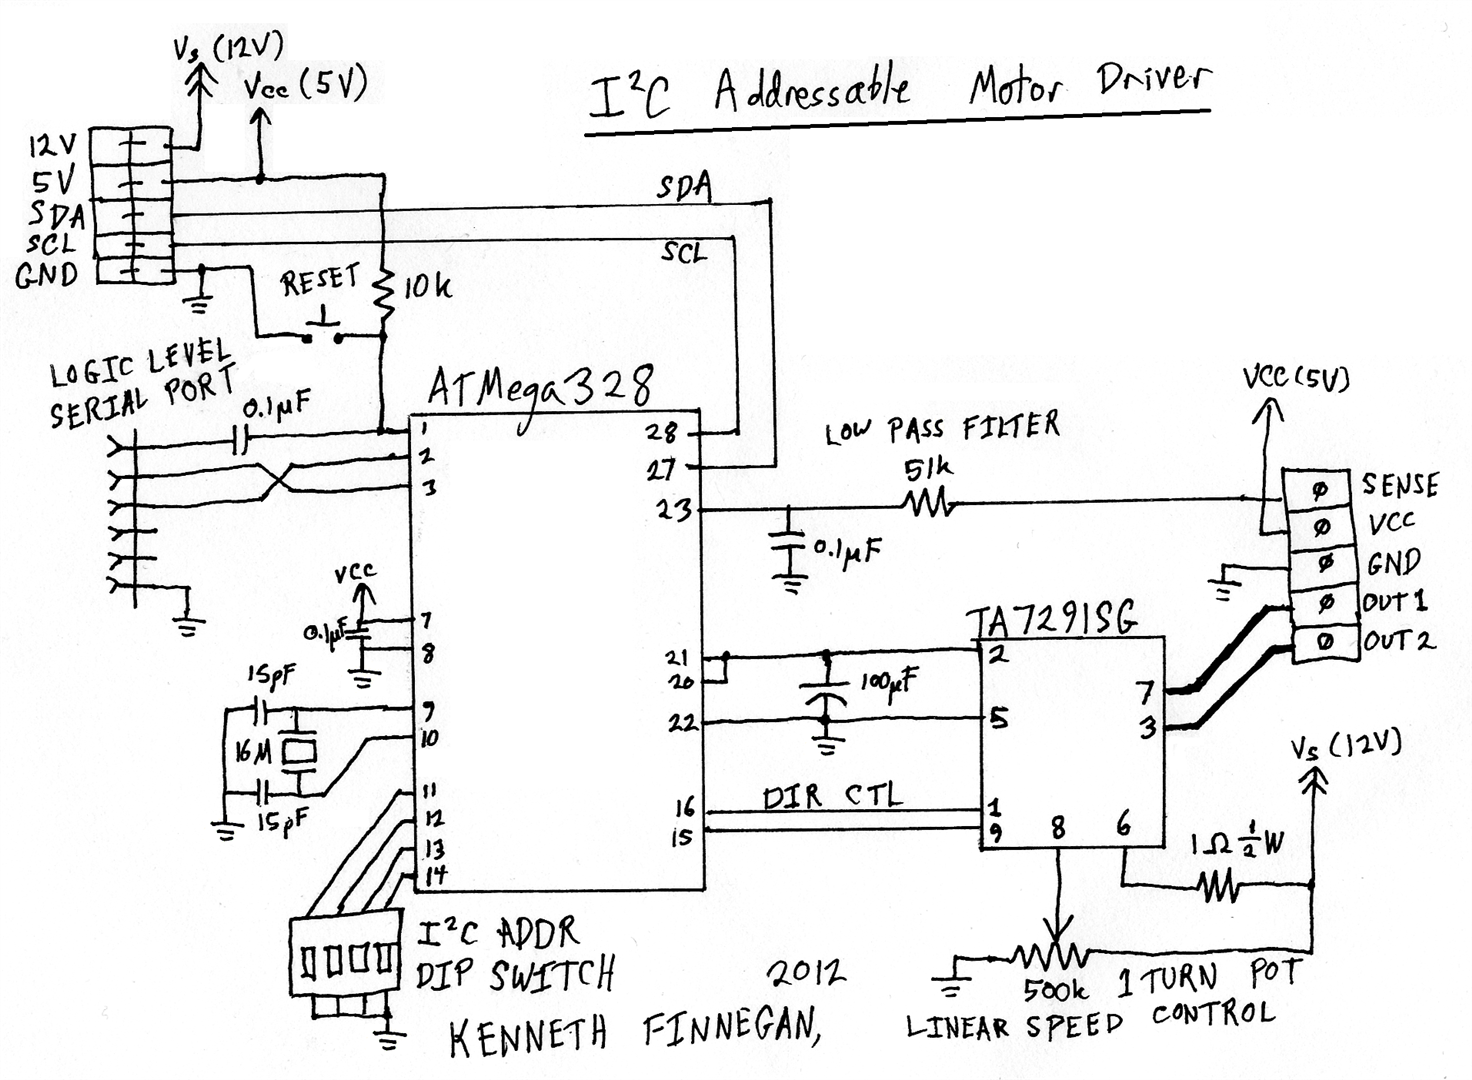 I²C Addressable Motor Driver
Vs (12V)
Vcc (5V)
12V
5V
SDA
SCL
GND
SDA
SCL
RESET
10k
LOGIC LEVEL
SERIAL PORT
0.1µF
ATMega328
1
2
3
7
8
9
10
11
12
13
14
28
27
23
21
20
22
16
15
VCC
0.1µF
15pF
16M
15pF
I²C ADDR
DIP SWITCH
LOW PASS FILTER
51k
0.1µF
VCC (5V)
SENSE
VCC
GND
OUT 1
OUT 2
TA7291SG
2
5
1
9
7
3
8
6
100µF
DIR CTL
Vs (12V)
1Ω ½W
500k
1 TURN POT
LINEAR SPEED CONTROL
2012
KENNETH FINNEGAN,